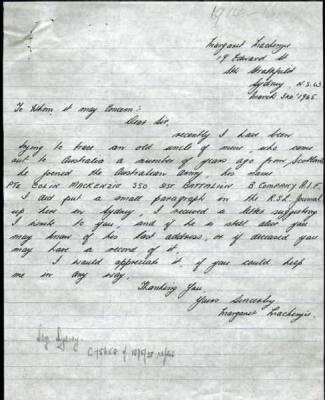 Margaret Mackenzie
19 Edward St
Sth Strathfield
Sydney N.S.W
March 3rd 1965
To Whom it may Concern:
Dear Sir,
recently I have been
trying to trace an old uncle of mine, who came
out to Australia a number of years ago from Scotland
he joined the Australian Army, his name
PTE COLIN MACKENZIE 350 51ST BATTALION B COMPANY A.I.F.
I did put a small paragraph in the R.S.L. Journal
up here in Sydney, I received a letter suggesting
I write to you, and if he is still alive you
may know of his last address, or if deceased you
may have a record of it.
I would appreciate it, if you could help
me in any way.
Thanking You,
Yours Sincerely
Margaret Mackenzie.
Sydney